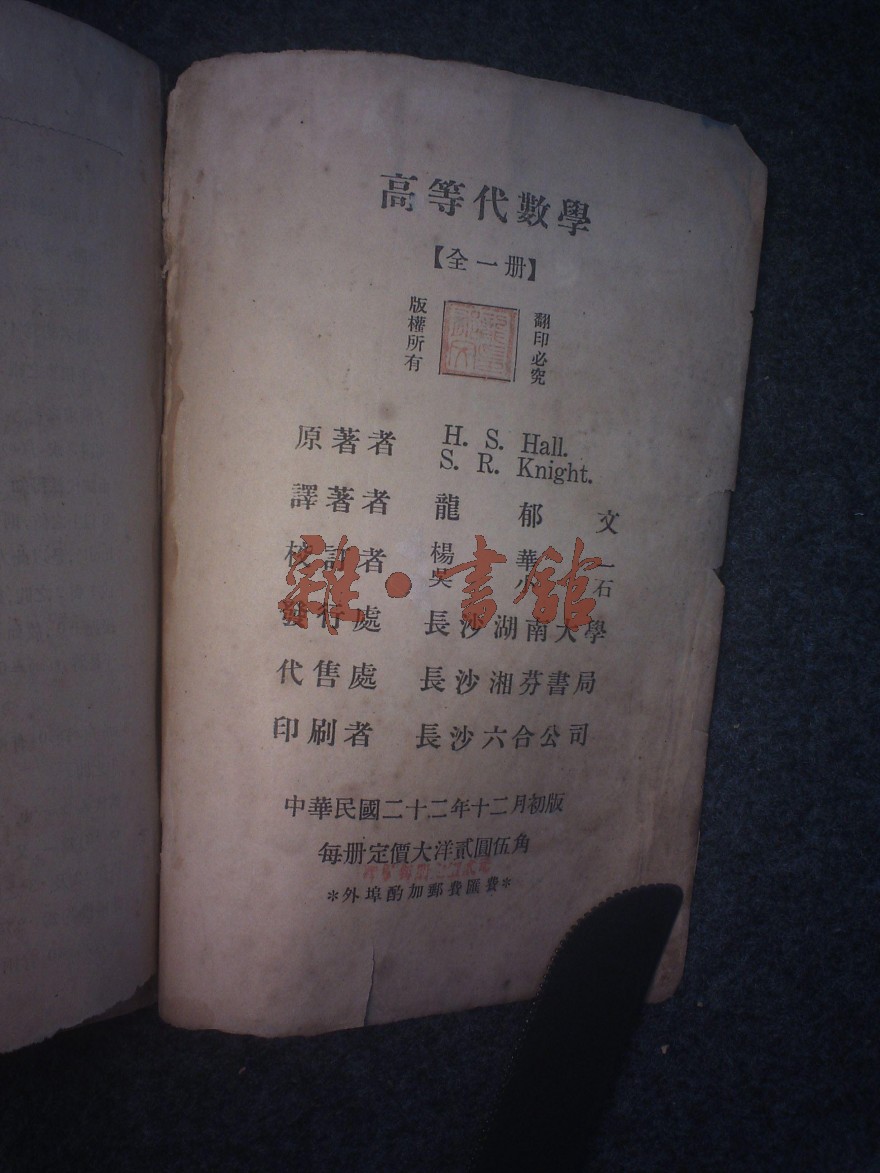 高等代數學
【全一册】
版權所有
翻印必究
原著者 H. S. Hall.
S. R. Knight.
譯著者 龍郁文
校訂者 楊華一
吳少石
發行處 長沙湖南大學
代售處 長沙湘芬書局
印刷者 長沙六合公司
中華民國二十二年十二月初版
每册定價大洋貳圓伍角
*外埠酌加郵費匯費*
雜·書館